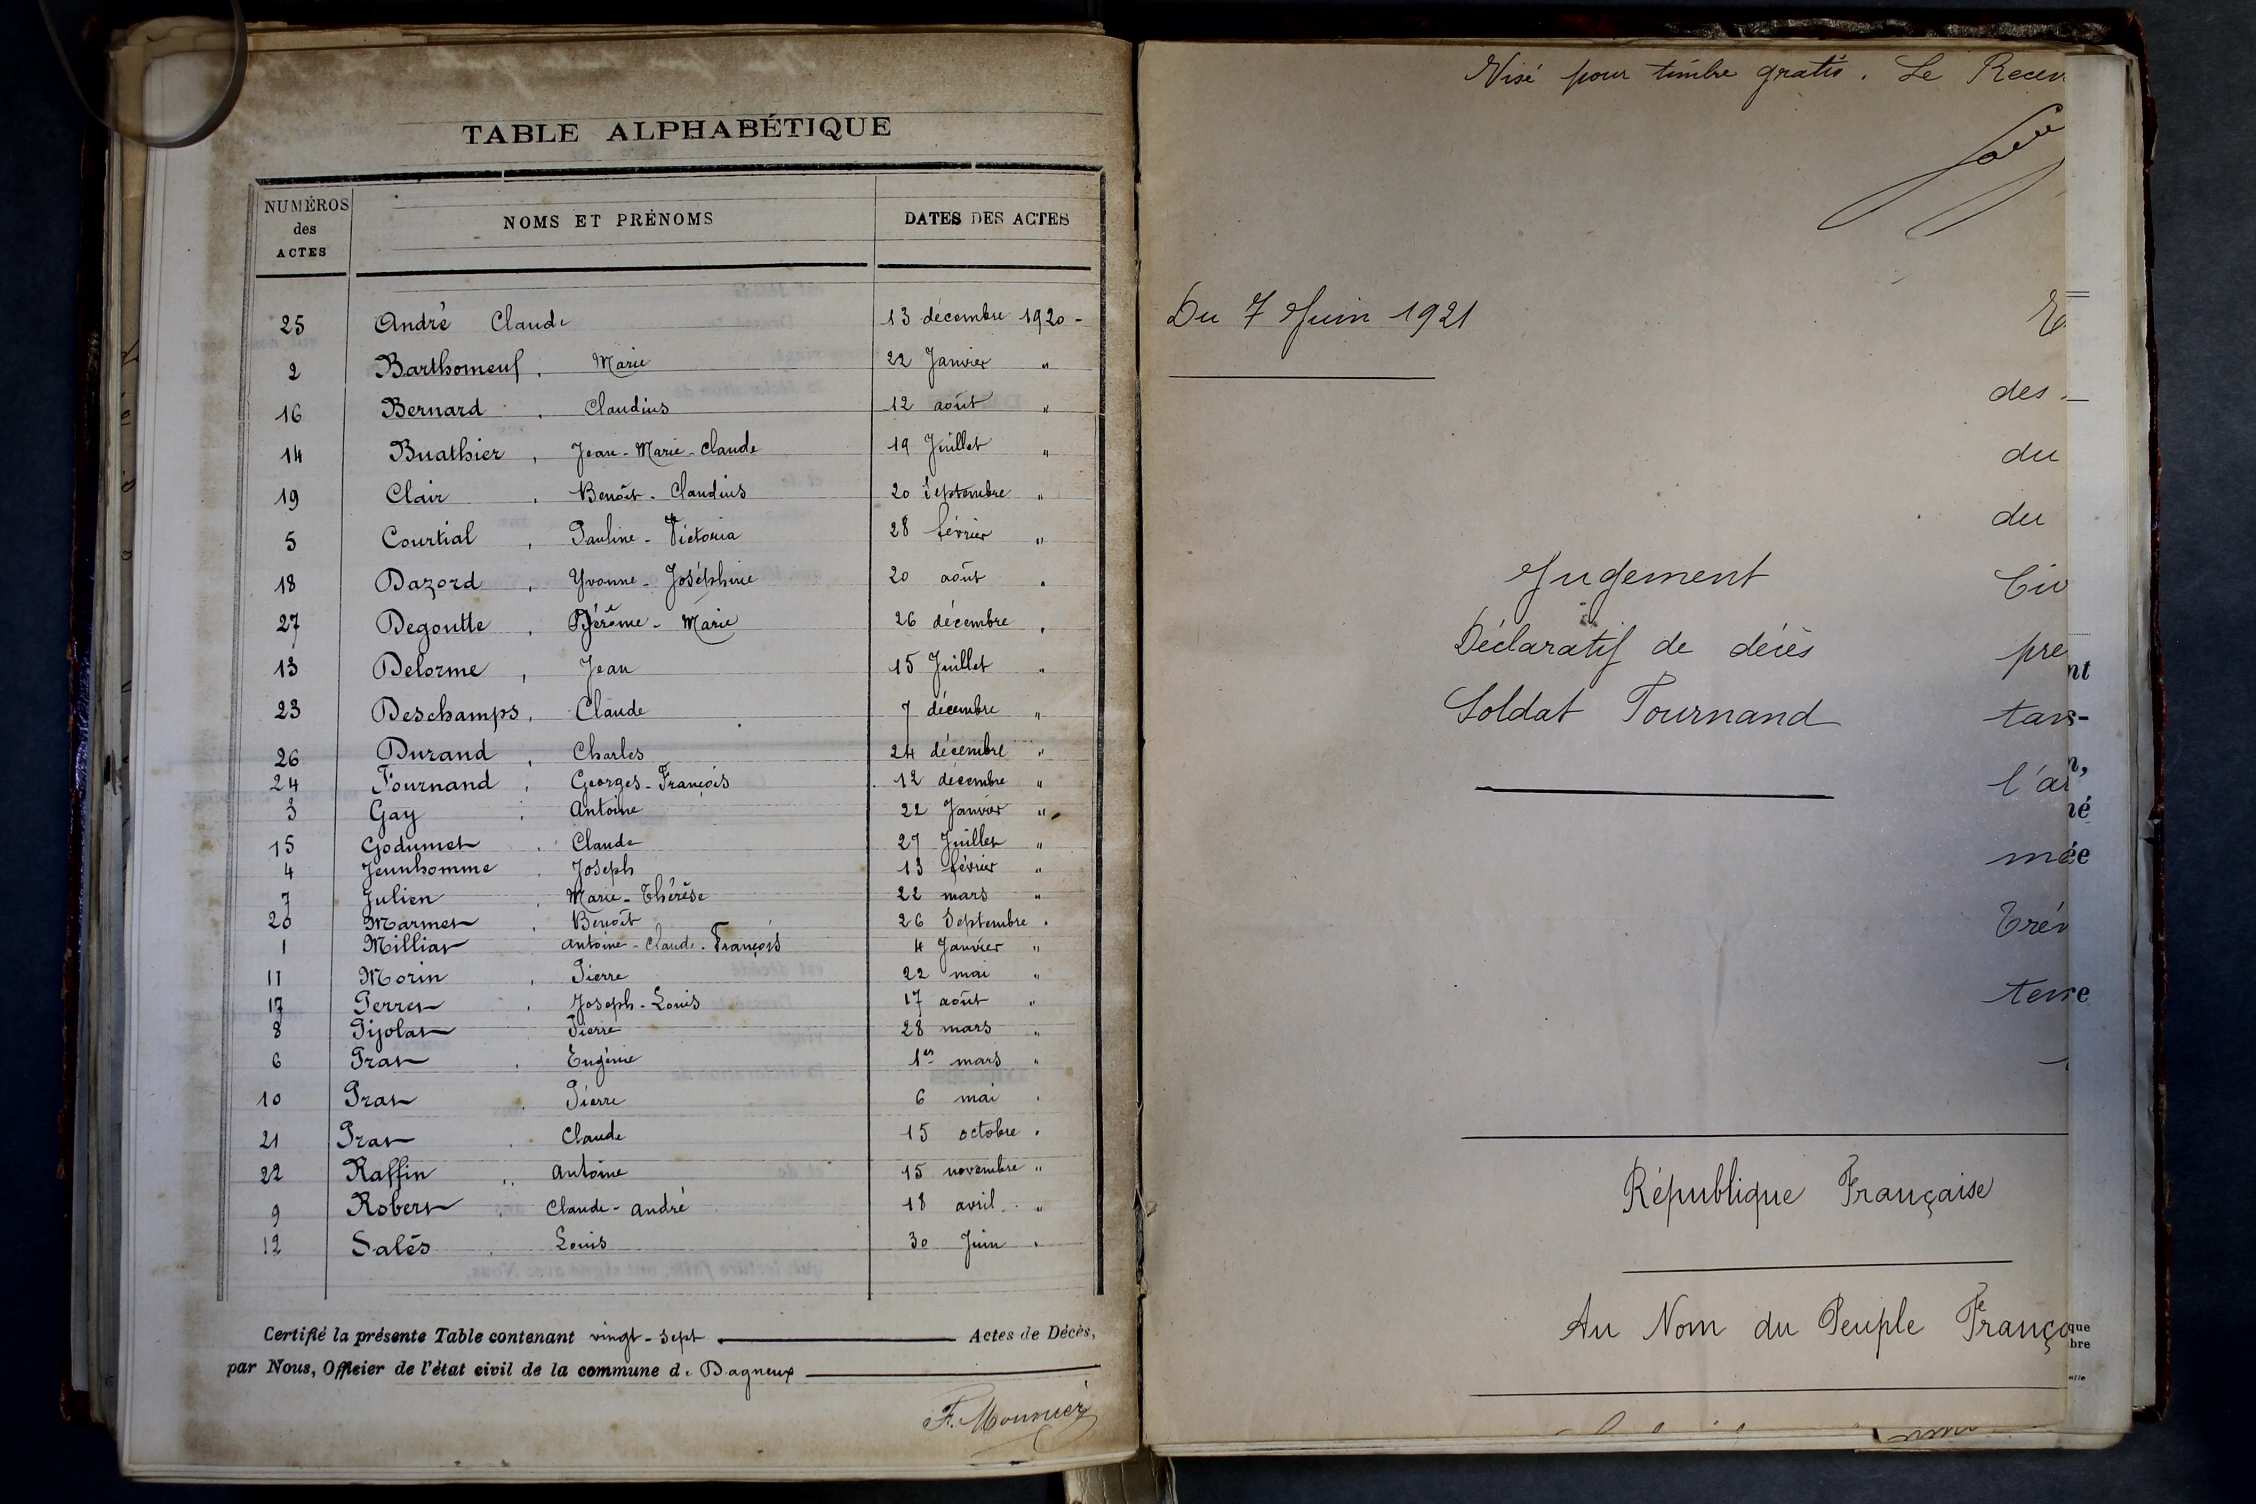 TABLE ALPHABÉTIQUE
NUMÉROS des ACTES NOMS ET PRÉNOMS DATES DES ACTES
25 André Claude 13 décembre 1920 -
2 Barthomeuf, Marie 22 Janvier "
16 Bernard, Claudius 12 août "
14 Buathier, Jean-Marie-Claude 19 Juillet "
19 Clair, Benoît-Claudius 20 Septembre "
5 Courtial, Pauline-Victoria 28 février "
18 Dazord, Yvonne-Joséphine 20 août "
27 Degoutte, Jérôme-Marie 26 décembre "
13 Delorme, Jean 15 Juillet "
23 Deschamps, Claude 7 décembre "
26 Durand, Charles 24 décembre "
24 Fournand, Georges-François 12 décembre "
3 Gay, Antoine 22 Janvier "
15 Godumet, Claude 27 Juillet "
4 Jeunhomme, Joseph 13 février "
7 Julien, Marie-Thérèse 22 mars "
20 Marmet, Benoît 26 Septembre "
1 Milliat Antoine-Claude-François 4 Janvier "
11 Morin, Pierre 22 mai "
17 Perret, Joseph-Louis 17 août "
8 Pijolat Pierre 28 mars "
6 Prat, Eugénie 1er mars "
10 Prat, Pierre 6 mai "
21 Prat, Claude 15 octobre "
22 Raffin, Antoine 15 novembre "
9 Robert, Claude-André 18 avril "
12 Salès, Louis 30 Juin "
Certifié la présente Table contenant vingt-sept Actes de Décès,
par Nous, Officier de l'état civil de la commune d. Dagneux
F. Mounier
Visé pour timbre gratis. Le Recev
Du 7 Juin 1921
des
du
du
Jugement
Civ
Déclaratif de décès
pre
nt
Soldat Fournand
tan-
l'ar
né
mée
Trév
terre
République Française
Au Nom du Peuple França
que
bre